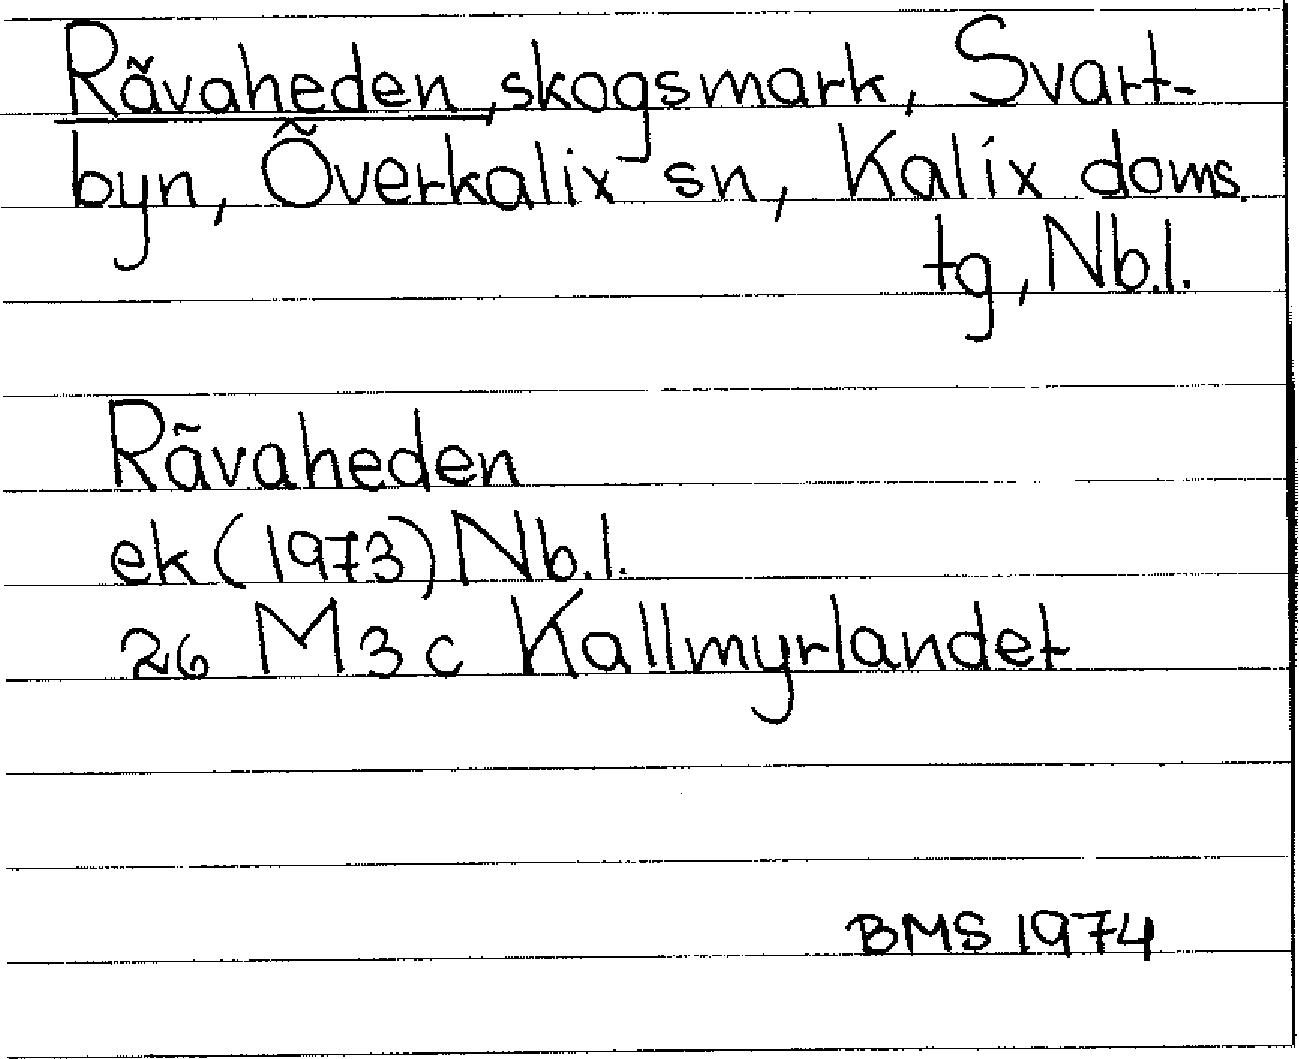 Rävaheden, skogsmark, Svart-
byn, Överkalix sn, Kalix doms.
tg, Nb.l.
Rävaheden
ek (1973) Nb.l.
26 M 3 c Kallmyrlandet
BMS 1974